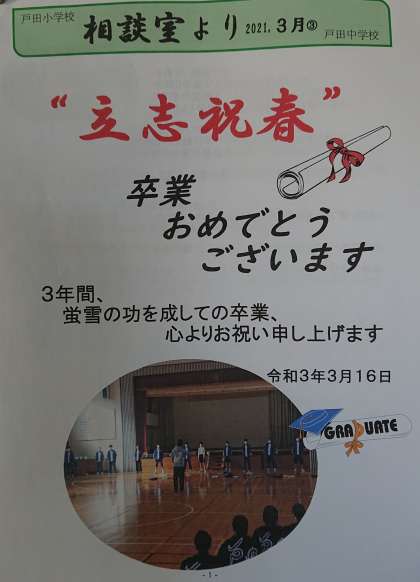 戸田小学校
相談室より 2021.3月③
戸田中学校
"立志祝春"
卒業
おめでとう
ございます
3年間、
蛍雪の功を成しての卒業、
心よりお祝い申し上げます
令和3年3月16日
GRADUATE
- 1 -